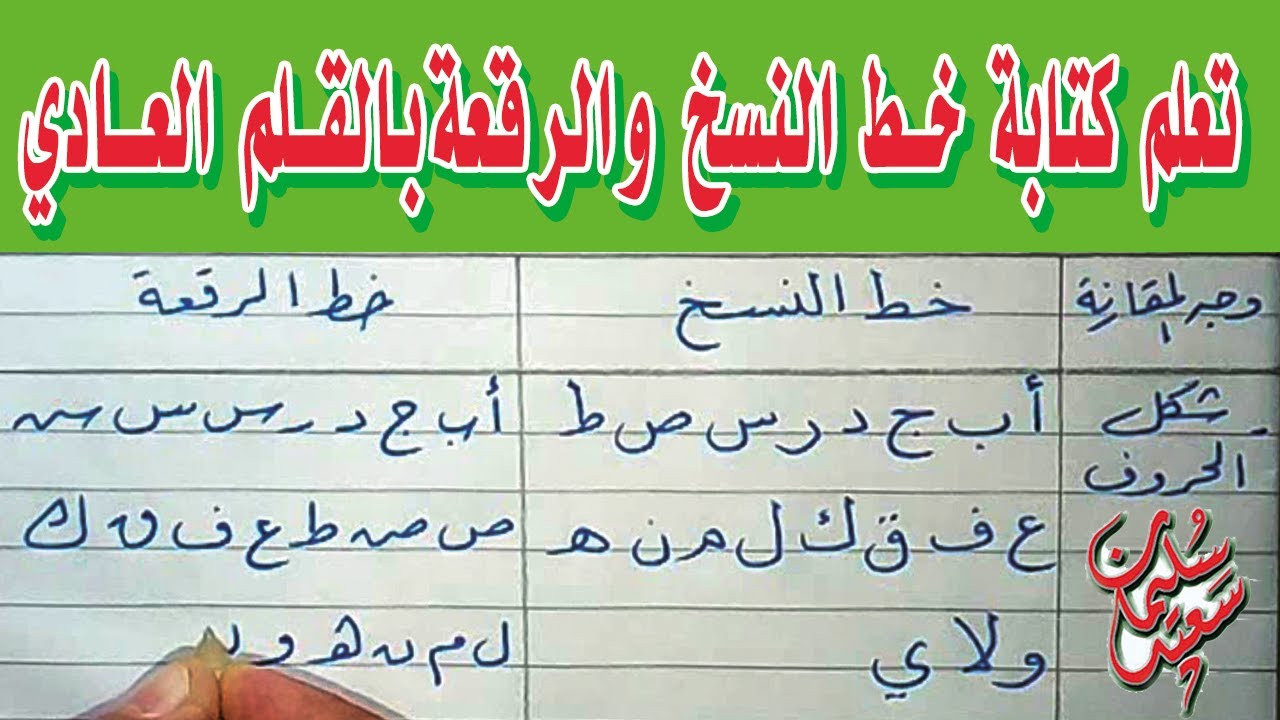 تعلم كتابة خط النسخ والرقعة بالقلم العادي
وجه المقانة خط النسخ خط الرقعة
شكل الحروف
أ ب ج د ر س ص ط
أ ب ج د ر س س سـ
ع ف ق ك ل م ن هـ
ص صـ ط ع ف ق ك
و لا ي
ل م ن هـ و
سليمان سعيد